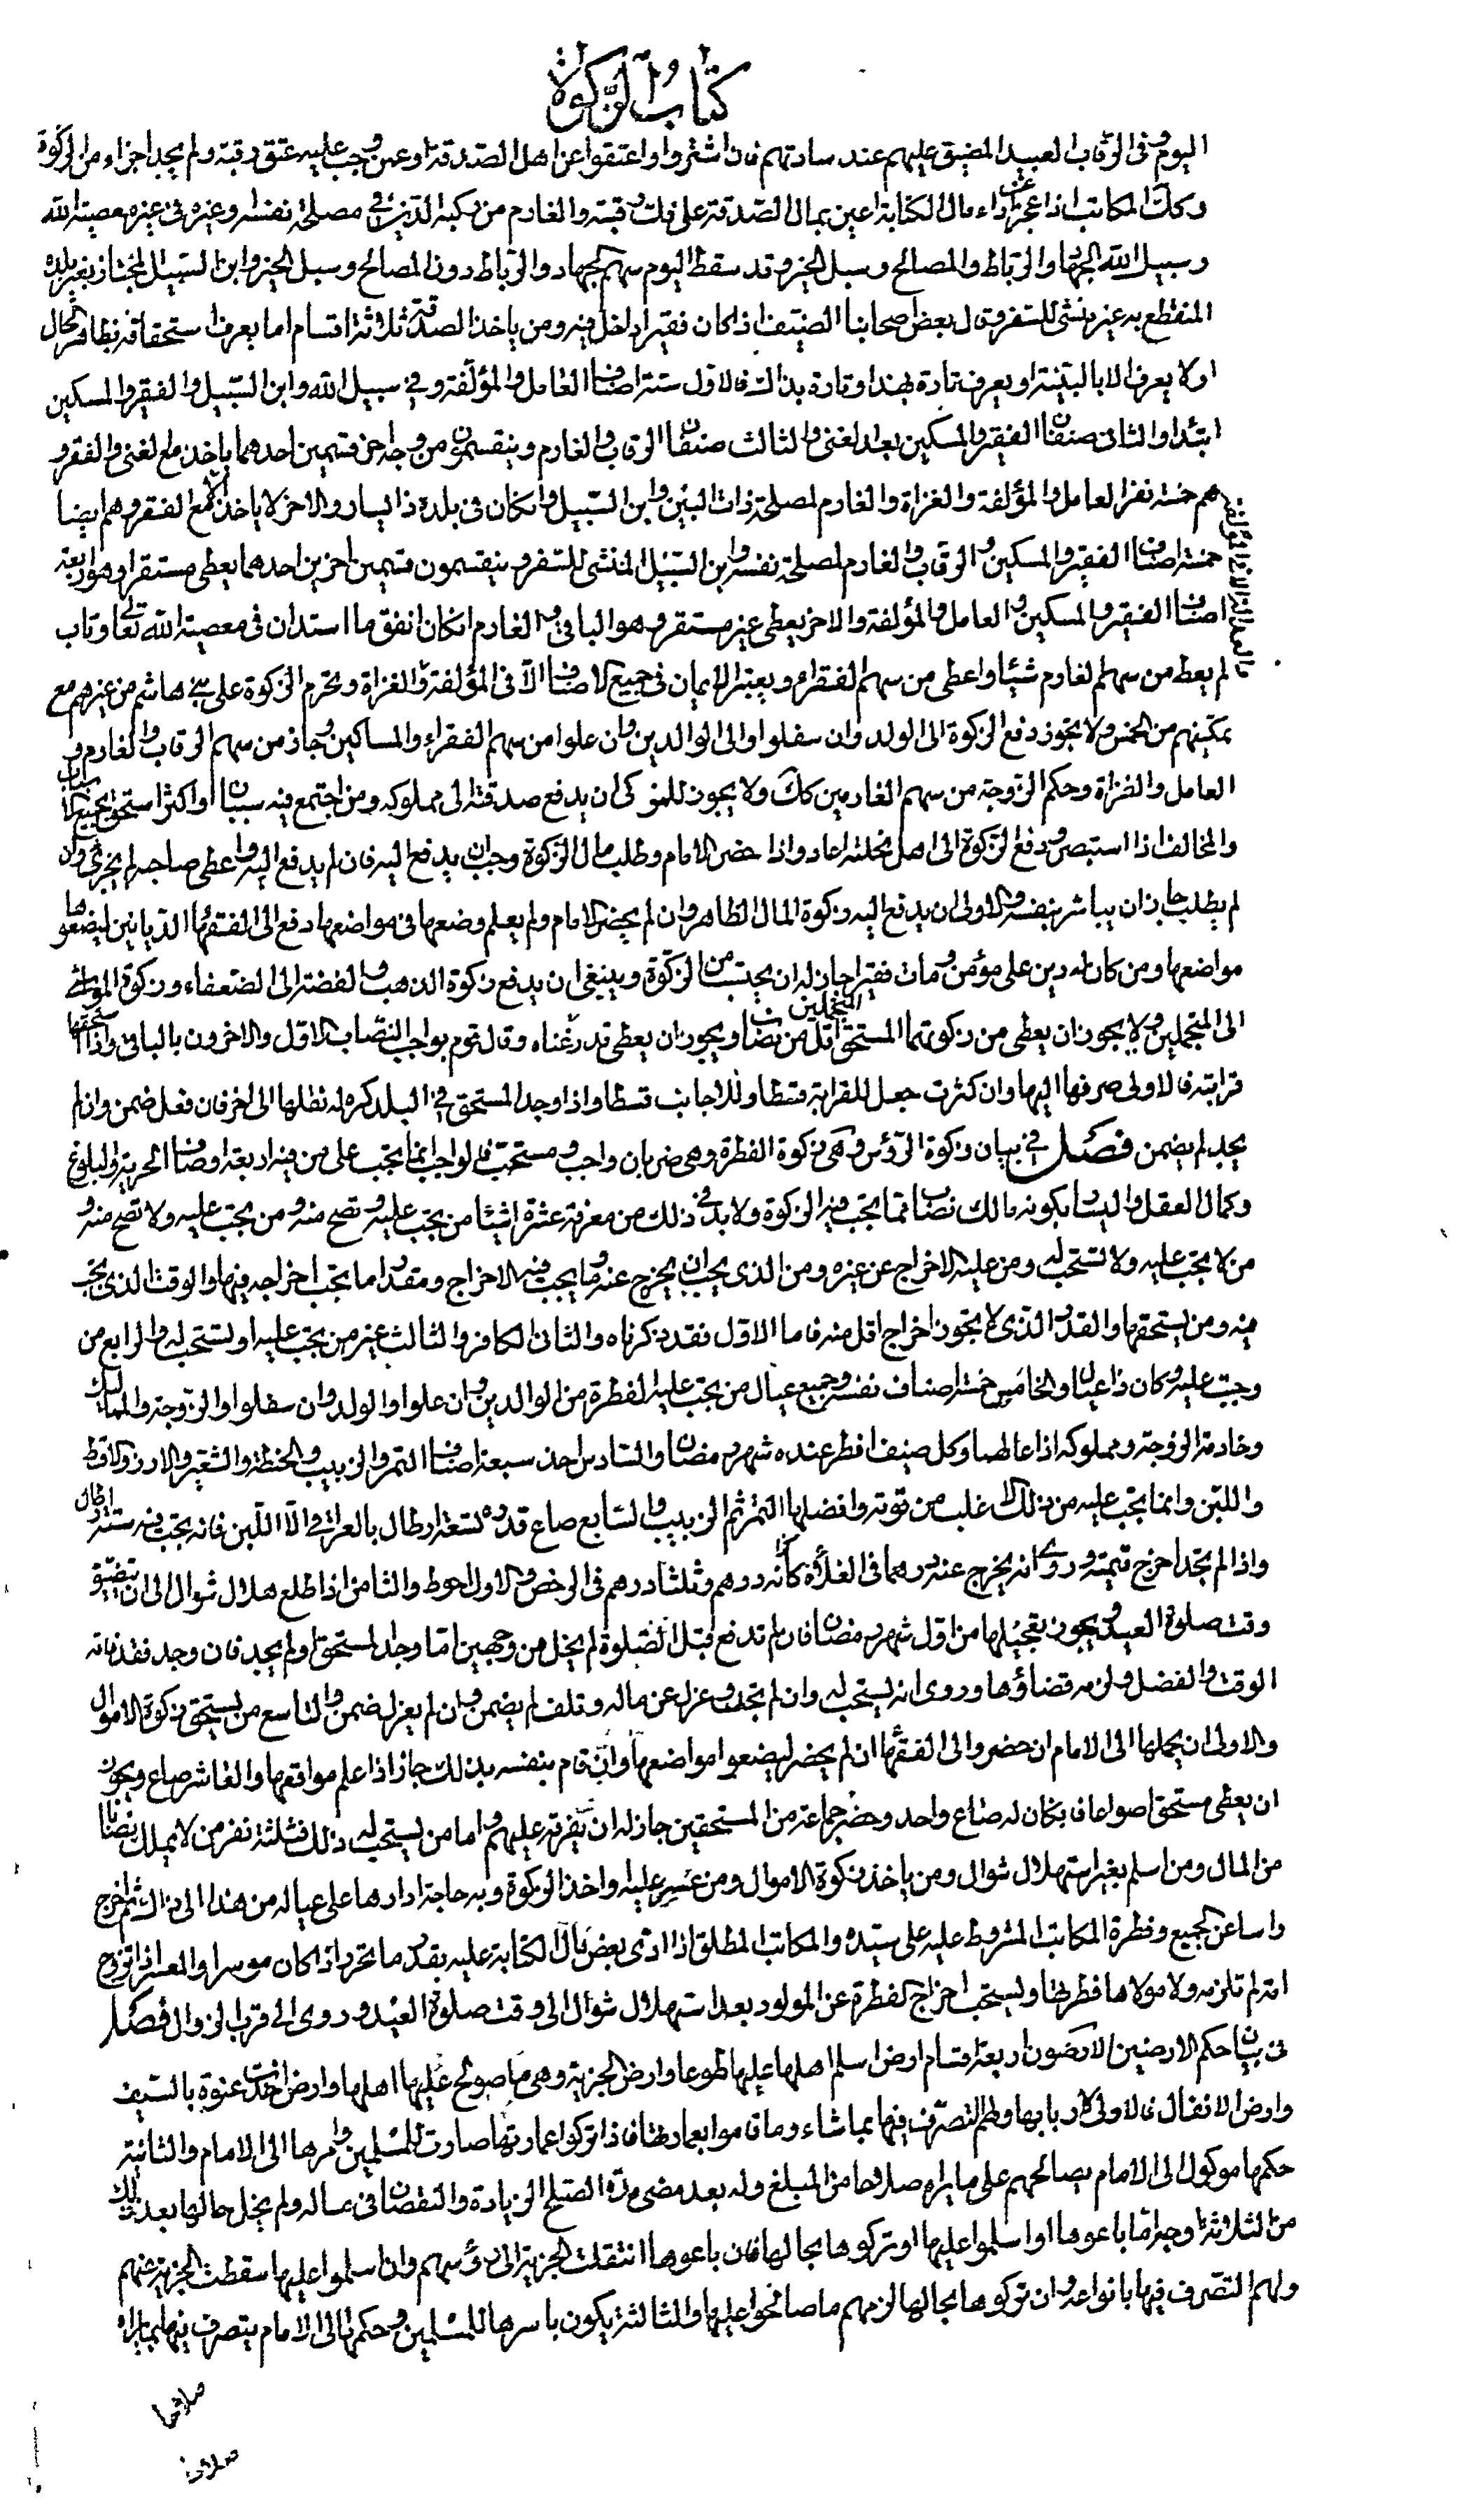 كتاب الزكوة
اليوم وفي الرقاب العبيد المضيق عليهم عند سادتهم فان اشتروا واعتقوا عن اهل الصدقة او عمن وجب عليه عتق رقبة ولم يجد اجزاء من الزكوة
وكك المكاتب اذا عجز عن اداء مال الكتابة اعين بمال الصدقة على فك رقبته والغارم من ركبه الدين في مصلحة نفسه وغيره في غير معصية الله
وسبيل الله الجهاد والرباط والمصالح وسبل الخير وقد سقط اليوم سهم الجهاد والرباط دون المصالح وسبل الخير وابن السبيل المجتاز بغير بلده
المنقطع به غير منشئ للسفر وقال بعض اصحابنا الضيف اذا كان فقيرا دخل فيه ومن ياخذ الصدقة ثلاثة اقسام اما يعرف استحقاقه بظاهر الحال
او لا يعرف الا بالبينة او يعرف تارة بهذا وتارة بذاك فالاول ستة اصناف العامل والمؤلفة وفي سبيل الله وابن السبيل والفقير والمسكين
ابتداء والثاني صنفان الفقير والمسكين بعد الغنى والثالث صنفان الرقاب والغارم وينقسمون من وجه اخر قسمين احدهما ياخذ مع الغنى والفقر و
هم خمسة نفر العامل والمؤلفة والغزاة والغارم لمصلحة ذات البين وابن السبيل وان كان في بلده ذا يسار والاخر لا ياخذ الا مع الفقر وهم ايضا
خمسة اصناف الفقير والمسكين والرقاب والغارم لمصلحة نفسه وابن السبيل المنشئ للسفر وينقسمون قسمين اخرين احدهما يعطى مستقرا وهو اربعة
اصناف الفقير والمسكين والعامل والمؤلفة والاخر يعطى غير مستقر وهو الباقي والغارم ان كان انفق ما استدان في معصية الله تعالى وتاب
لم يعط من سهم الغارم شيئا واعطى من سهم الفقراء ويعتبر الايمان في جميع الاصناف الا في المؤلفة والغزاة وتحرم الزكوة على بني هاشم من غيرهم مع
تمكينهم من الخمس ولا يجوز دفع الزكوة الى الولد وان سفلوا والى الوالدين وان علوا من سهم الفقراء والمساكين وجاز من سهم الرقاب والغارم و
العامل والغزاة وحكم الزوجة من سهم الغارمين كك ولا يجوز للمزكى ان يدفع صدقته الى مملوكه ومن اجتمع فيه سببان او اكثر استحق بجميع الاسباب
والمخالف اذا استبصر ودفع الزكوة الى اهل نحلته اعاد واذا حضر الامام وطلب مال الزكوة وجب ان يدفع اليه فان لم يدفع اليه واعطى صاحبه لم يجزئ وان
لم يطلب جاز ان يباشر بنفسه والاولى ان يدفع اليه زكوة المال الظاهر وان لم يحضر الامام ولم يعلم وضعها في مواضعها دفع الى الفقهاء الديانين ليضعوها
مواضعها ومن كان له دين على مؤمن ومات فقيرا جاز له ان يحتسب من الزكوة وينبغي ان يدفع زكوة الذهب والفضة الى الضعفاء وزكوة المواشي
الى المتجملين ولا يجوز ان يعطى من زكوتهما المستحق اقل من نصاب ويجوز ان يعطى قدر غناه وقال قوم بواجب النصاب الاول والاخرون بالباقي واذا استحقها
قرابته فالاولى صرفها اليها وان كثرت جعل للقرابة قسطا وللاجانب قسطا واذا وجد المستحق في البلد كره له نقلها الى اخر فان فعل ضمن وان لم
يجد لم يضمن فصل في بيان زكوة الرؤس وهي زكوة الفطرة وهي ضربان واجب ومستحب فالواجب انما يجب على من فيه اربعة اوصاف الحرية والبلوغ
وكمال العقل واليسار بكونه مالك نصاب مما يجب فيه الزكوة ولا بد في ذلك من معرفة عشرة اشياء من يجب عليه وتصح منه ومن يجب عليه ولا تصح منه و
من لا يجب عليه ولا تستحب له ومن عليه الاخراج عن غيره ومن الذي يجب ان يخرج عنه وما يجب فيه الاخراج ومقدار ما يجب اخراجه فيها والوقت الذي يجب
فيه ومن يستحقها والقدر الذي لا يجوز اخراج اقل منه فاما الاول فقد ذكرناه والثاني الكافر والثالث غير من يجب عليه او تستحب له والرابع من
وجبت عليه وكان ذا عيال والخامس خمسة اصناف نفسه وجميع عيال من يجب عليه الفطرة من الوالدين وان علوا والولد وان سفلوا والزوجة والمماليك
وخادمة الزوجة ومملوكه اذا عالهما وكل ضيف افطر عنده شهر رمضان والسادس احد سبعة اصناف التمر والزبيب والحنطة والشعير والارز والاقط
واللبن وانما يجب عليه من ذلك الاغلب من قوته وافضلها التمر ثم الزبيب والسابع صاع قدره تسعة ارطال بالعراقي الا اللبن فانه يجب منه ستة ارطال
واذا لم يجد اخرج قيمته وروى انه يخرج عنه درهما في الغلاء كانه درهم وثلثا درهم في الرخص والاول احوط والثامن اذا طلع هلال شوال الى ان يتضيق
وقت صلوة العيد ويجوز تعجيلها من اول شهر رمضان فان لم تدفع قبل الصلوة لم يخل من وجهين اما وجد المستحق او لم يجد فان وجد فقد فاته
الوقت والفضل ولزمه قضاؤها وروى انه يستحب له وان لم يجد وعزل عن ماله وتلف لم يضمن وان لم يعزل ضمن والتاسع من يستحق زكوة الاموال
والاولى ان يحملها الى الامام ان حضر والى الفقهاء ان لم يحضر ليضعوا مواضعها وان قام بنفسه بذلك جاز اذا علم مواقعها والعاشر صاع ويجوز
ان يعطى مستحق اصواعا فان كان له صاع واحد وحضر جماعة من المستحقين جاز له ان يفرقه عليهم واما من يستحب له ذلك فثلثة نفر من لا يملك نصابا
من المال ومن اسلم بعد استهلال شوال ومن ياخذ زكوة الاموال ومن عسر عليه واخذ الزكوة وبه حاجة ادارها على عياله من هذا الى ذاك ثم اخرج
راسا عن الجميع وفطرة المكاتب المشروط عليه على سيده والمكاتب المطلق اذا ادى بعض مال الكتابة عليه بقدر ما تحرر اذا كان موسرا والمعسر اذا تزوج
امة لم تلزمه ولا مولاها فطرتها ويستحب اخراج الفطرة عن المولود بعد استهلال شوال الى وقت صلوة العيد وروى الى قرب الزوال فصل
في بيان حكم الارضين الارضون اربعة اقسام ارض اسلم اهلها عليها طوعا وارض الجزية وهي ما صولح عليها اهلها وارض اخذت عنوة بالسيف
وارض الانفال فالاولى لاربابها ولهم التصرف فيها بما شاء وما قاموا بعمارتها فاذا تركوا عمارتها صارت للمسلمين وامرها الى الامام والثانية
حكمها موكول الى الامام يصالحهم على ما يراه صلاحا من المبلغ وله بعد مضي مدة الصلح الزيادة والنقصان في ماله ولم يخل حالها بعد ذلك
من ثلاثة اوجه اما باعوها او اسلموا عليها او تركوها بحالها فان باعوها انتقلت الجزية الى رؤسهم وان اسلموا عليها سقطت الجزية عنهم
ولهم التصرف فيها بانواعه وان تركوها بحالها لزمهم ما صالحوا عليها والثالثة يكون باسرها للمسلمين وحكمها الى الامام يتصرف فيها بما يراه